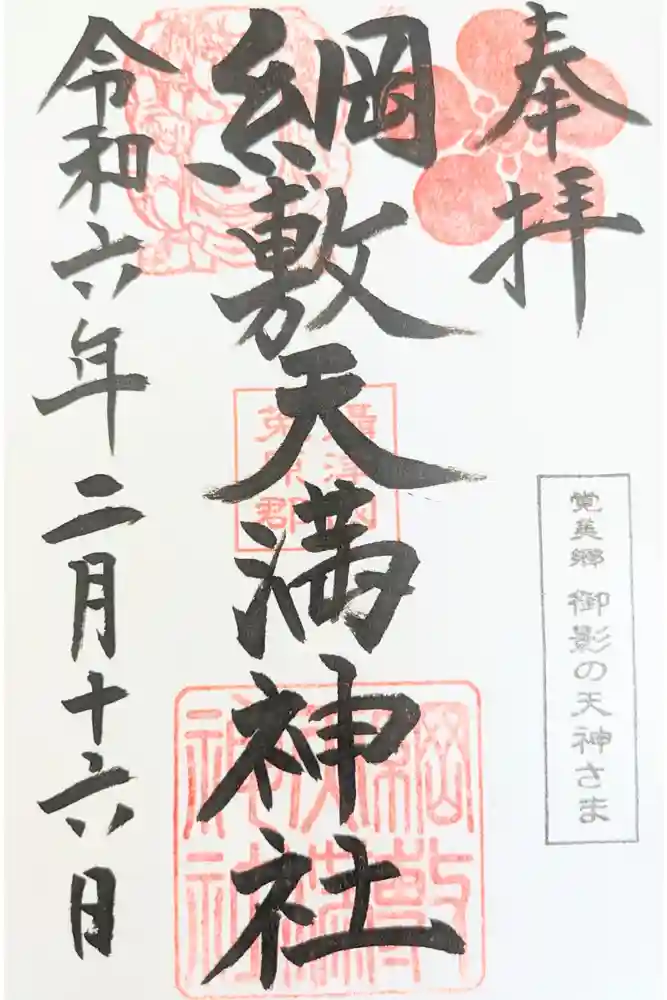 奉拝
覚美郷 御影の天神さま
綱敷天満神社
攝津国
菟原郡
綱敷
天満
神社
令和六年二月十六日